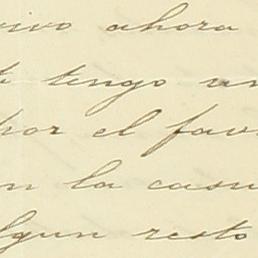 vivo ahora
tengo un
por el fav
n la casu
lgun resto